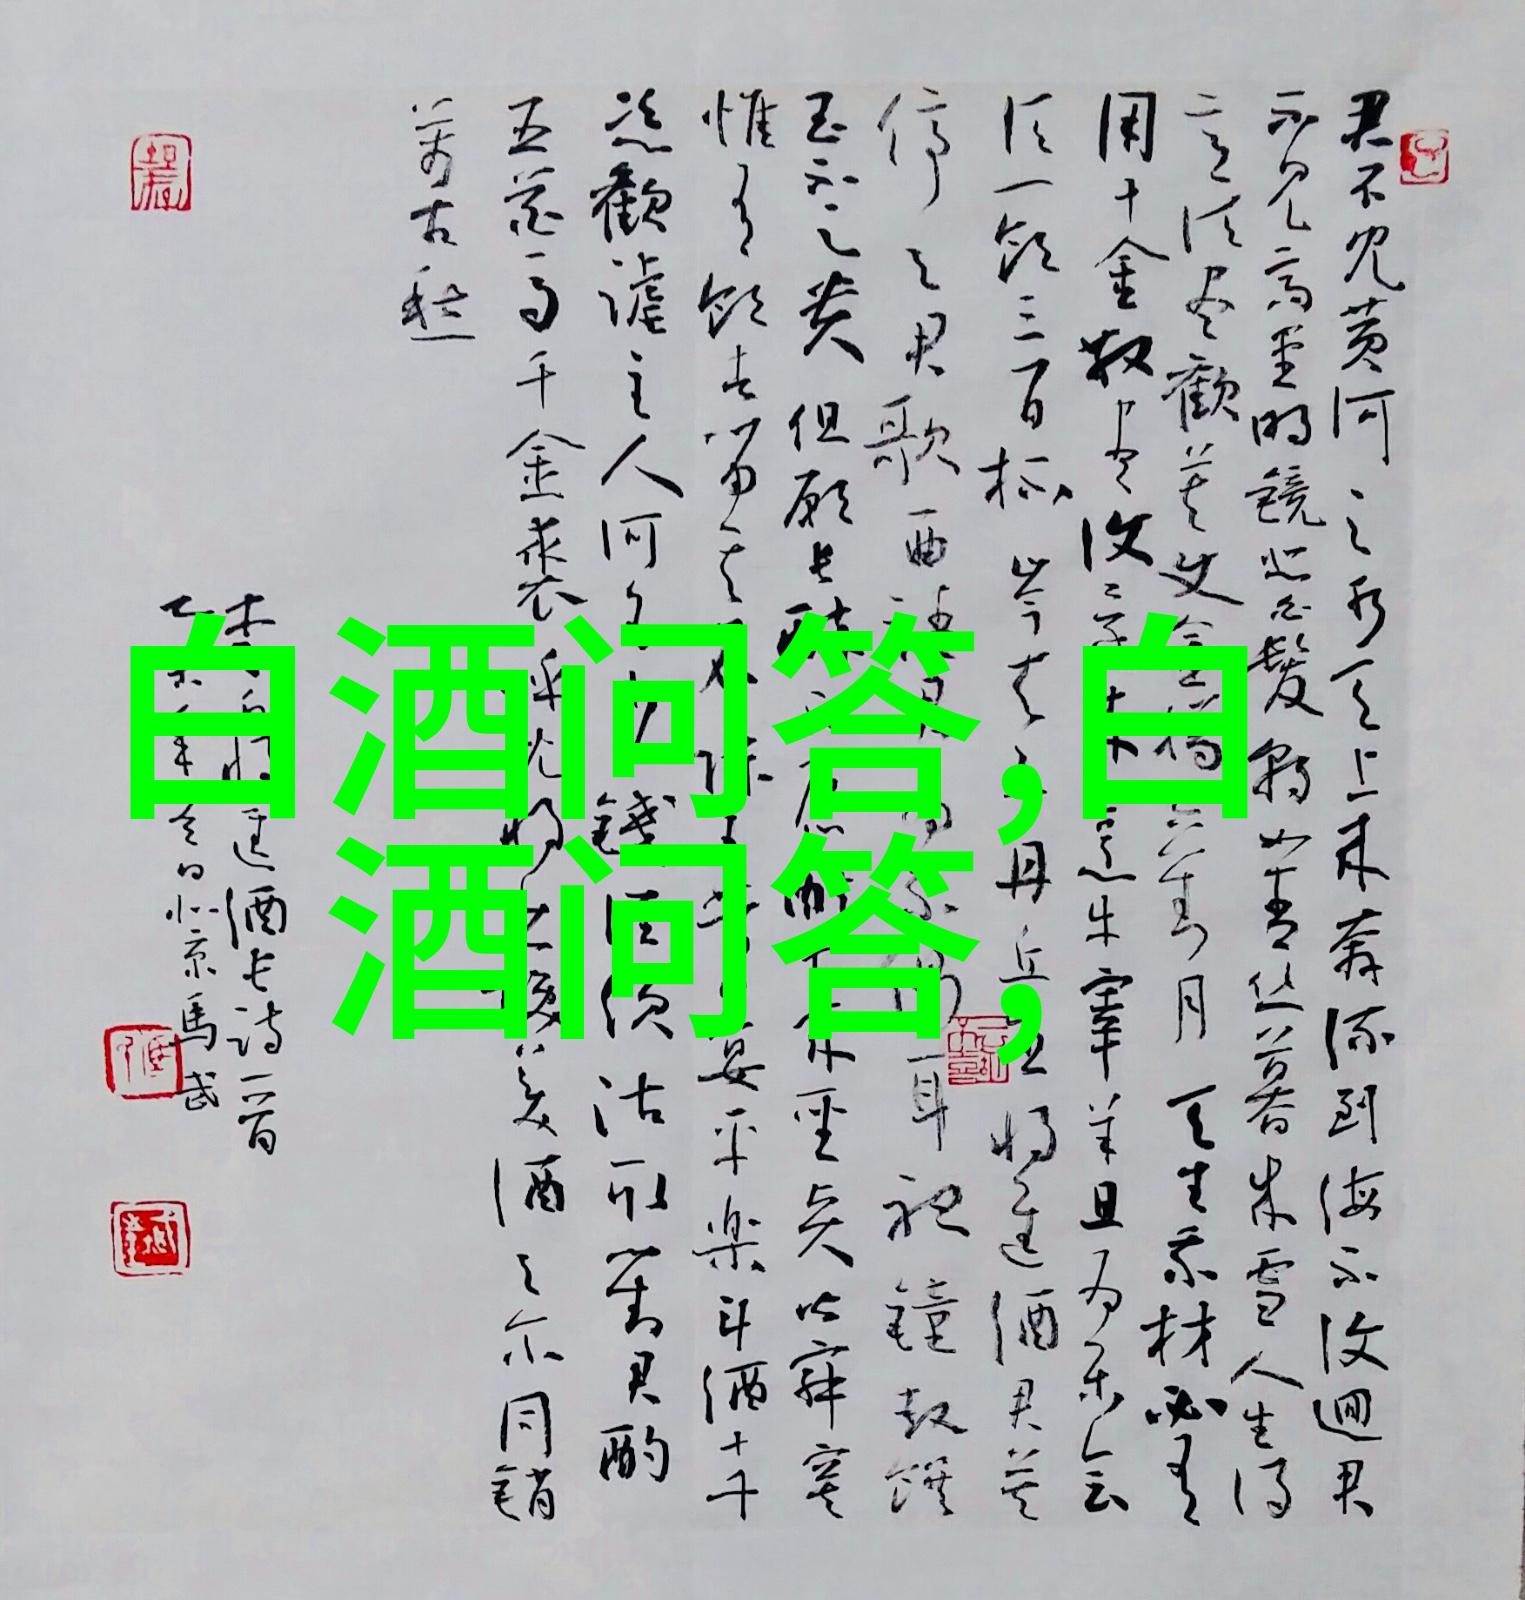 君不见黄河之水天上来奔流到海不復迴君
不见高堂明镜悲白髮朝如青丝暮成雪人生得
意须尽歡莫使金樽空對月天生我材必有
用千金散尽復還来烹牛宰羊且为乐会
须一饮三百杯岑夫子丹丘生将进酒君莫
停与君歌一曲请君为我倾耳听鐘鼓馔
玉不足贵但願长醉不愿醒古来聖贤皆寂寞
惟有饮者留其名陈王昔时宴平樂斗酒十千
恣歡謔主人何为言少錢径须沽取對君酌
五花马千金裘呼儿将出换美酒与尔同銷
萬古愁
李白将进酒长诗一首
乙未年冬日北京馬武
白酒问答,白
酒问答,